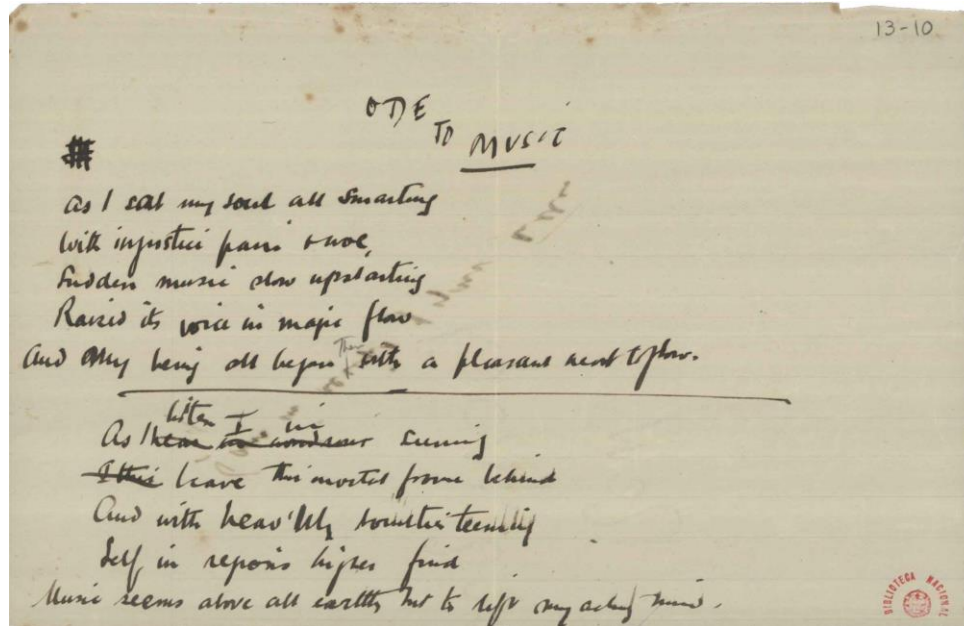 13-10
ODE
TO
MUSIC
As I sat my soul all smarting
With injustice pain & woe,
Sudden music slow upstarting
Raised its voice in magic flow
And my being all began then with a pleasant heat to glow.
listen I in
As I hear seeming
I this leave this mortal frame behind
And with heav'nly teeming
Self in regions higher find
Music seems above all earthly to lift my aching mind.
BIBLIOTECA NACIONAL